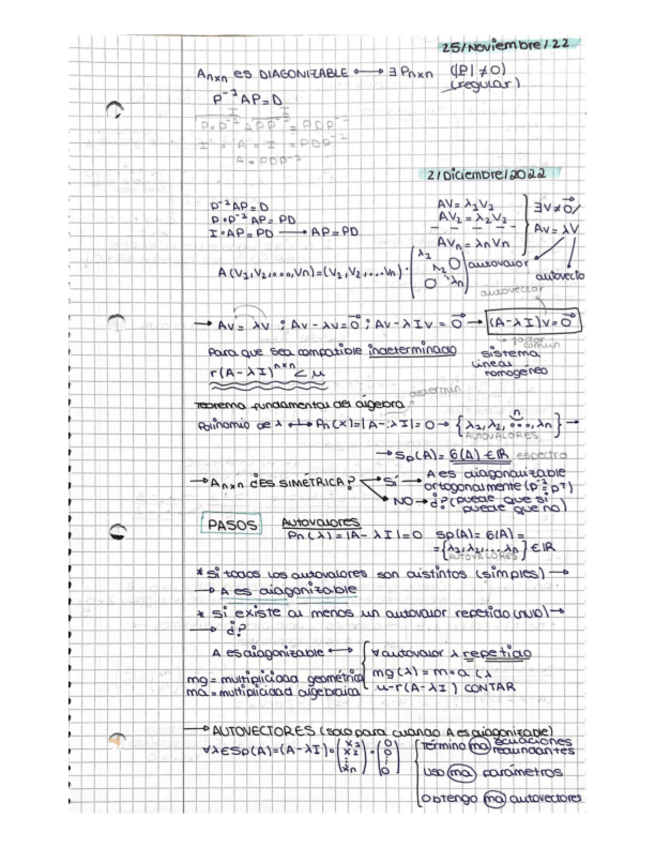 25/Noviembre/22
Anxn es DIAGONIZABLE ⟷ ∃ Pnxn (|P| ≠ 0)
(regular)
P⁻¹AP=D
P·P⁻¹ APP⁻¹ = PDP⁻¹
I · A · I = PDP⁻¹
A = PDP⁻¹
2/Diciembre/2022
P⁻¹AP=D
P·P⁻¹AP=PD
I·AP=PD → AP=PD
AV=λ1V1
AV2=λ2V2
AVn=λnVn
∃V≠0⃗/
AV=λV
A(V1,V2,...,Vn)=(V1,V2,...Vn)·(λ1 λ2 0 0 ⋱ λn)
autovalor
autovecto
autovector
→ AV=λV ; AV-λV=0⃗ ; AV-λIV=0⃗ → (A-λI)V=0⃗
factor común
Para que sea compatible indeterminado
sistema
lineal
homogéneo
r(A-λI)ⁿˣⁿ < n
Teorema fundamental del álgebra
determin.
Polinomio de λ ↔ Pn(λ)=|A-λI|=0 → {λ1,λ2,...,λn} →
n
AUTOVALORES
→ Sp(A)=σ(A)∈ℝ espectro
→ Anxn ¿ES SIMÉTRICA?
SÍ → A es diagonalizable
ortogonalmente (P⁻¹=Pᵀ)
NO → ¿? (puede que sí
puede que no)
PASOS
Autovalores
Pn(λ)=|A-λI|=0 Sp(A)=σ(A)=
={λ1,λ2,...λn}∈ℝ
AUTOVALORES
* Si todos los autovalores son distintos (simples) →
→ A es diagonizable
* Si existe al menos un autovalor repetido (nulo) →
→ ¿?
A es diagonizable ⟷ { ∀ autovalor λ repetido
mg = multiplicidad geométrica
mg(λ)=m·a(λ
ma = multiplicidad algebraica
n-r(A-λI) CONTAR
→ AUTOVECTORES (solo para cuando A es diagonizable)
∀λ∈Sp(A)=(A-λI)·(x1 x2 ⋮ xn)=(0 0 ⋮ 0)
Término ma ecuaciones
redundantes
uso ma parámetros
obtengo ma autovectores